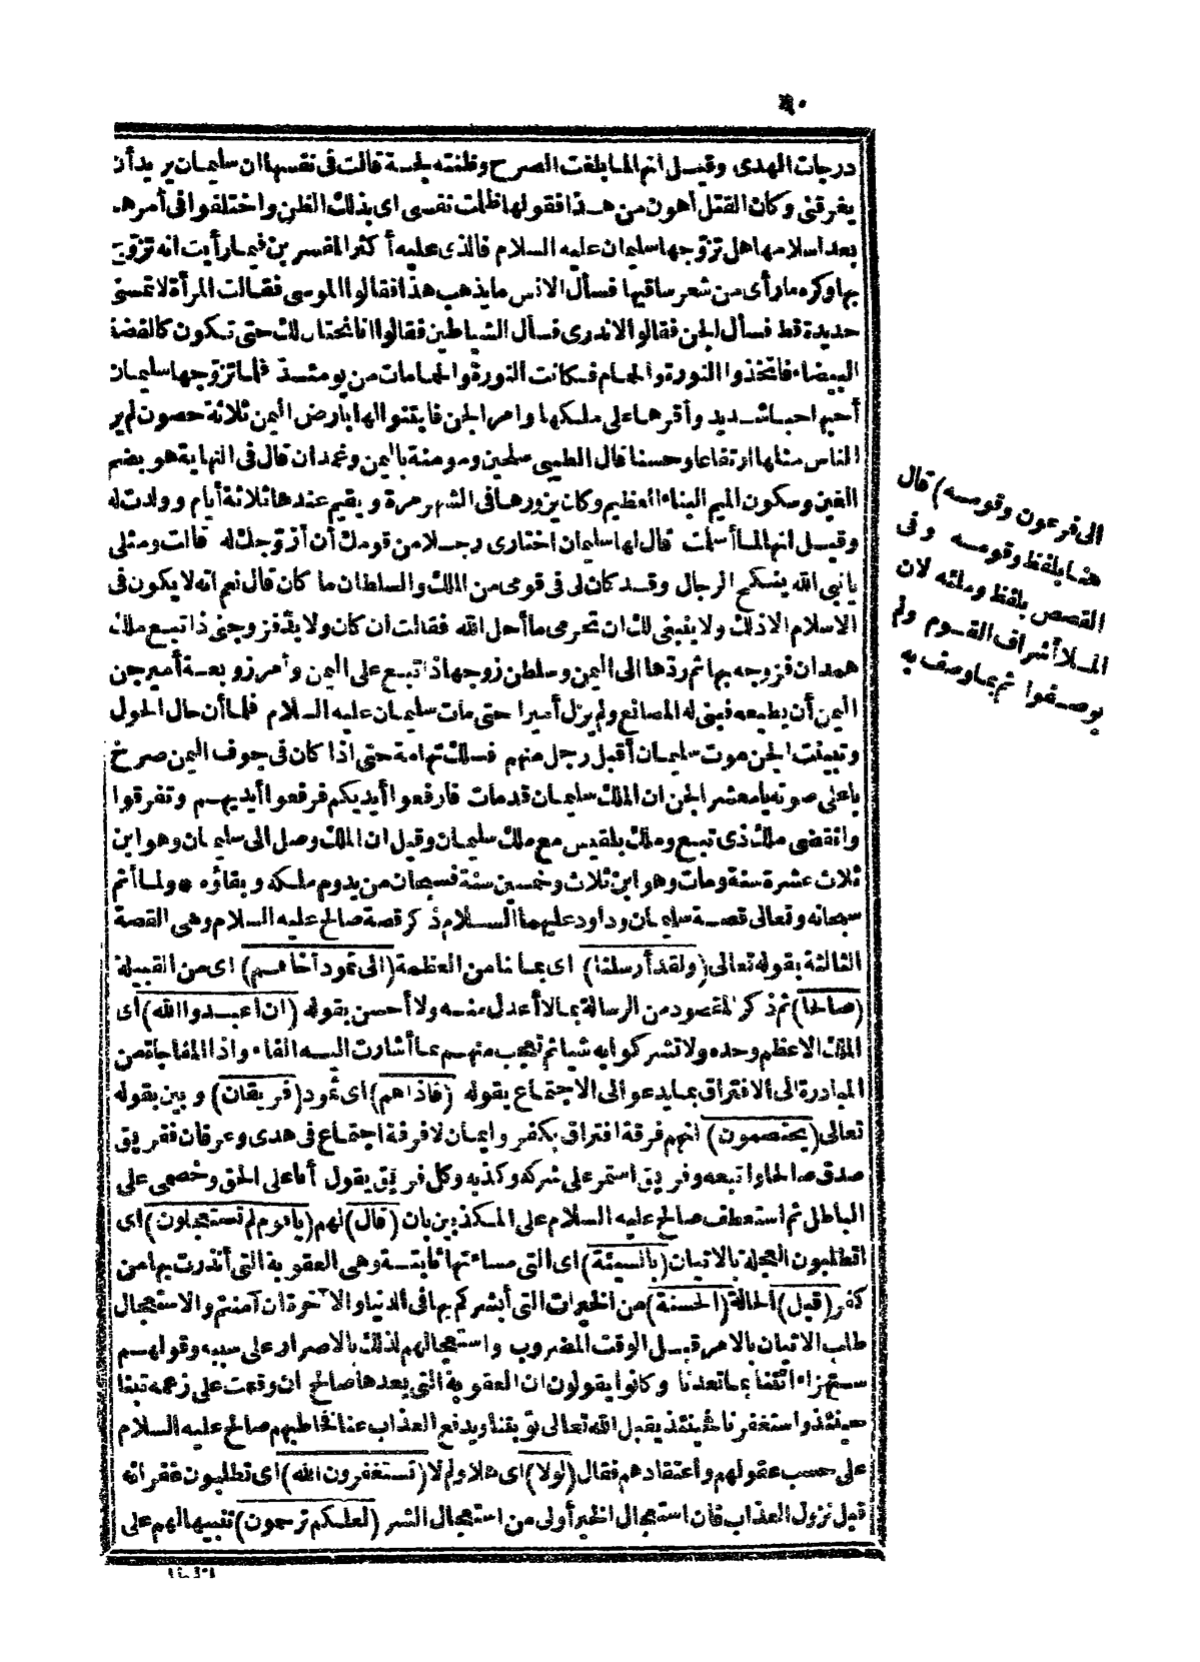 درجات الهدى وقيل انها لما بلغت الصرح وظنته لجة قالت فى نفسها ان سليمان يريد أن
يغرقنى وكان القتل أهون من هذا فقولها ظلمت نفسى اى بذلك الظن واختلفوا فى أمرها
بعد اسلامها هل تزوّجها سليمان عليه السلام فالذى عليه أكثر المفسرين فيما رأيت انه تزوّج
بها وكره ما رأى من شعر ساقيها فسأل الانس ما يذهب هذا فقالوا الموسى فقالت المرأة لا تمسنى
حديدة قط فسأل الجن فقالوا لا ندرى فسأل الشياطين فقالوا انا نحتال لك حتى تكون كالفضة
البيضاء فاتخذوا النورة والحمام فكانت النورة والحمامات من يومئذ فلما تزوّجها سليمان
أحبها حبا شديدا وأقرها على ملكها وامر الجن فابتنوا لها بأرض اليمن ثلاثة حصون لم ير
الناس مثلها ارتفاعا وحسنا قال الطيبى سلحين ومومنة باليمن وغمدان قال فى النهاية هو بضم
الغين وسكون الميم البناء العظيم وكان يزورها فى الشهر مرة ويقيم عندها ثلاثة أيام وولدت له
وقيل انها لما أسلمت قال لها سليمان اختارى رجلا من قومك أن أزوّجك له قالت ومثلى
يا نبى الله ينكح الرجال وقد كان لى فى قومى من الملك والسلطان ما كان قال نعم انه لا يكون فى
الاسلام الا ذلك ولا ينبغى لك ان تحرمى ما أحل الله فقالت ان كان ولا بدّ فزوجنى ذا تبع ملك
همدان فزوجه بها ثم ردّها الى اليمن وسلطن زوجها ذا تبع على اليمن وأمر زوبعة أمير جن
اليمن أن يطيعه فبنى له المصانع ولم يزل أميرا حتى مات سليمان عليه السلام فلما أن حال الحول
وتبينت الجن موت سليمان أقبل رجل منهم فسلك تهامة حتى اذا كان فى جوف اليمن صرخ
باعلى صوته يا معشر الجن ان الملك سليمان قد مات فارفعوا أيديكم فرفعوا أيديهم وتفرقوا
وانقضى ملك ذى تبع وملك بلقيس مع ملك سليمان وقيل ان الملك وصل الى سليمان وهو ابن
ثلاث عشرة سنة ومات وهو ابن ثلاث وخمسين سنة فسبحان من يدوم ملكه وبقاؤه * ولما أتم
سبحانه وتعالى قصة سليمان وداود عليهما السلام ذكر قصة صالح عليه السلام وهى القصة
الثالثة بقوله تعالى (ولقد أرسلنا) اى بما لنا من العظمة (الى ثمود أخاهم) اى من القبيلة
(صالحا) ثم ذكر المقصود من الرسالة بما لا أعدل منه ولا أحسن بقوله (ان اعبدوا الله) أى
الملك الاعظم وحده ولا تشركوا به شيا ثم تعجب منهم بما أشارت اليه الفاء واذا المفاجأة من
المبادرة الى الافتراق بما يدعو الى الاجتماع بقوله (فاذا هم) اى ثمود (فريقان) وبين بقوله
تعالى (يختصمون) انهم فرقة افتراق بكفر وايمان لا فرقة اجتماع فى هدى وعرفان ففريق
صدق صالحا واتبعه وفريق استمر على شركه وكذبه وكل فريق يقول أنا على الحق وخصمى على
الباطل ثم استعطف صالح عليه السلام على المكذبين بان (قال) لهم (يا قوم لم تستعجلون) اى
اتطلبون العجلة بالاتيان (بالسيئة) اى التى مساءتها ثابتة وهى العقوبة التى أنذرت بها من
كفر (قبل) الحالة (الحسنة) من الخيرات التى أبشركم بها فى الدنيا والآخرة ان آمنتم والاستعجال
طلب الاتيان بالامر قبل الوقت المضروب واستعجالهم لذلك بالاصرار على سببه وقولهم
ستهزاء ائتنا بما تعدنا وكانوا يقولون ان العقوبة التى يعدها صالح ان وقعت على زعمه تبنا
حينئذ واستغفرنا فحينئذ يقبل الله تعالى توبتنا ويدفع العذاب عنا فخاطبهم صالح عليه السلام
على حسب عقولهم واعتقادهم فقال (لولا) اى هلا ولم لا (تستغفرون الله) اى تطلبون غفرانه
قبل نزول العذاب فان استعجال الخير أولى من استعجال الشر (لعلكم ترحمون) تنبيها لهم على
الى فرعون وقومه) قال
هنا بلفظ وقومه وفى
القصص بلفظ وملئه لان
الملأ أشراف القوم ولم
يوصفوا ثم بما وصف به